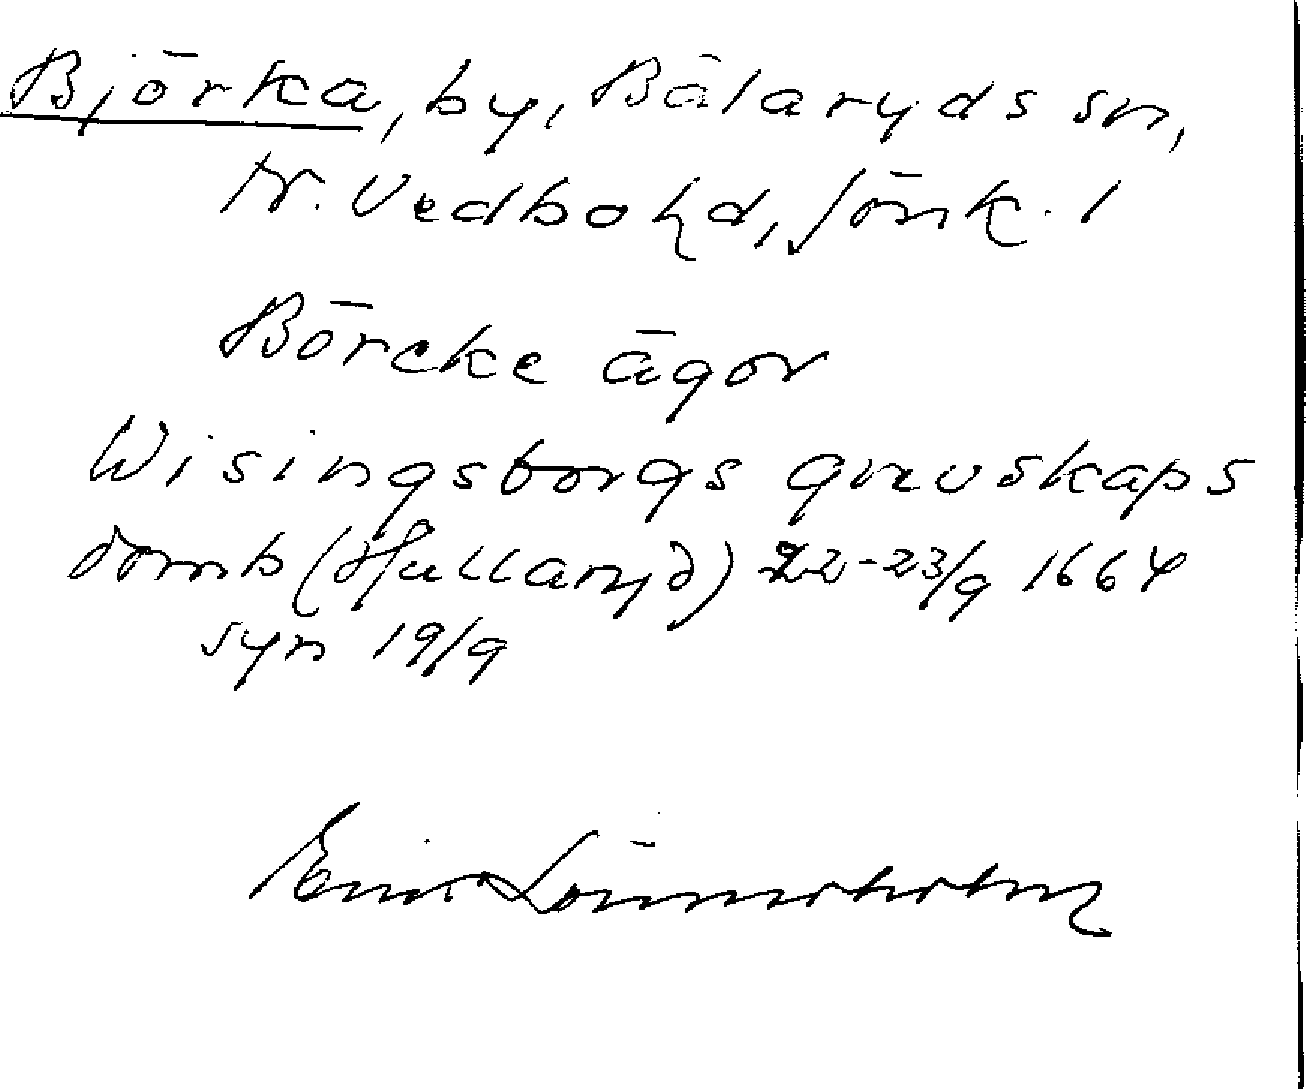 Björka, by, Bälaryds sn,
N. Vedbo hd, Jönk. l
Börcke ägor
Wisingsborgs grevskaps
domb (Hullaryd) 22-23/9 1664
syn 19/9
Erik